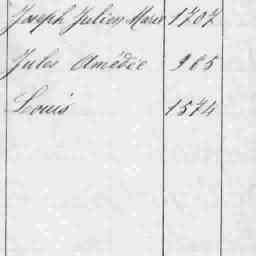 Joseph Julien Marie 1707
Jules Amédée 965
Louis 1574